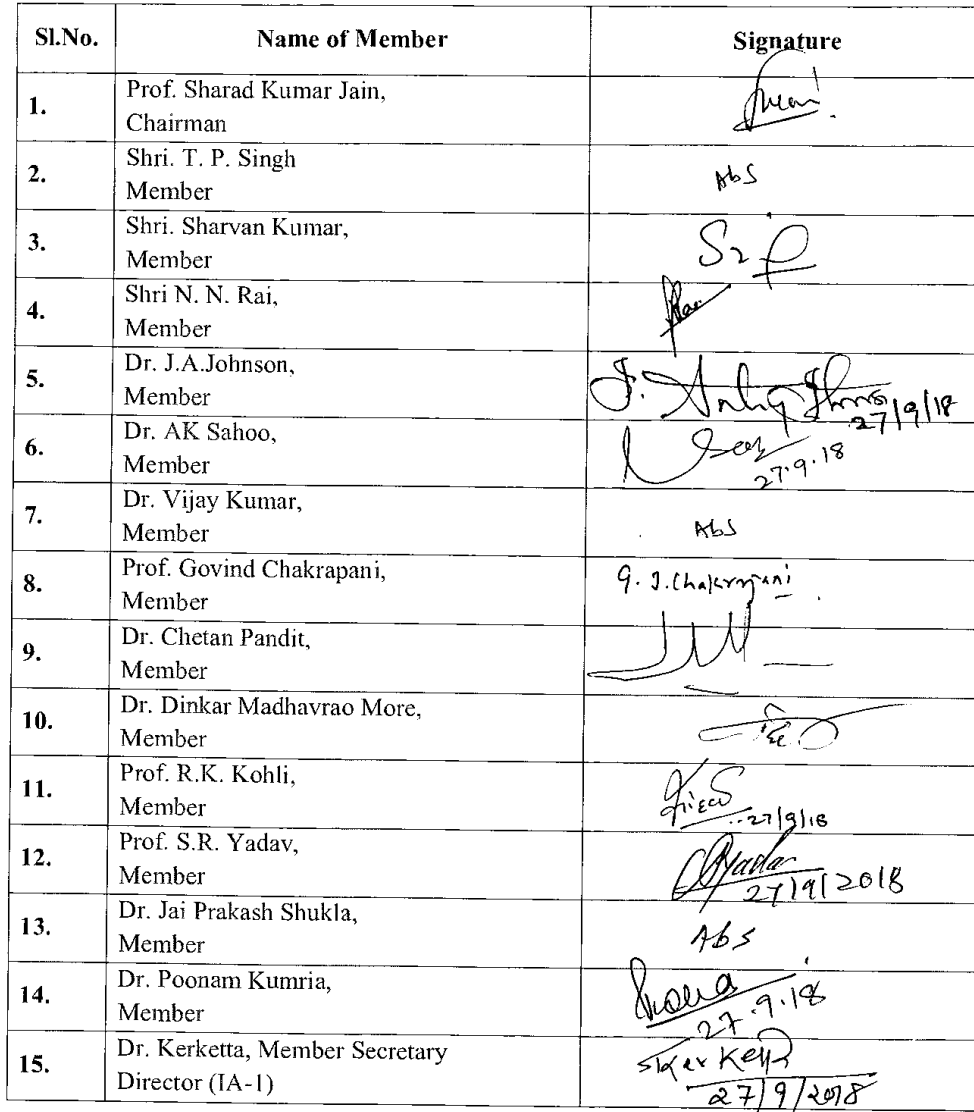 Sl.No. Name of Member Signature
1. Prof. Sharad Kumar Jain,
Chairman
2. Shri. T. P. Singh
Member
Abs
3. Shri. Sharvan Kumar,
Member
4. Shri N. N. Rai,
Member
5. Dr. J.A.Johnson,
Member
27/9/18
6. Dr. AK Sahoo,
Member
27.9.18
7. Dr. Vijay Kumar,
Member
Abs
8. Prof. Govind Chakrapani,
Member
G. J. Chakrapani
9. Dr. Chetan Pandit,
Member
10. Dr. Dinkar Madhavrao More,
Member
11. Prof. R.K. Kohli,
Member
27/9/18
12. Prof. S.R. Yadav,
Member
Yadav
27/9/2018
13. Dr. Jai Prakash Shukla,
Member
Abs
14. Dr. Poonam Kumria,
Member
27.9.18
15. Dr. Kerketta, Member Secretary
Director (IA-1)
27/9/2018